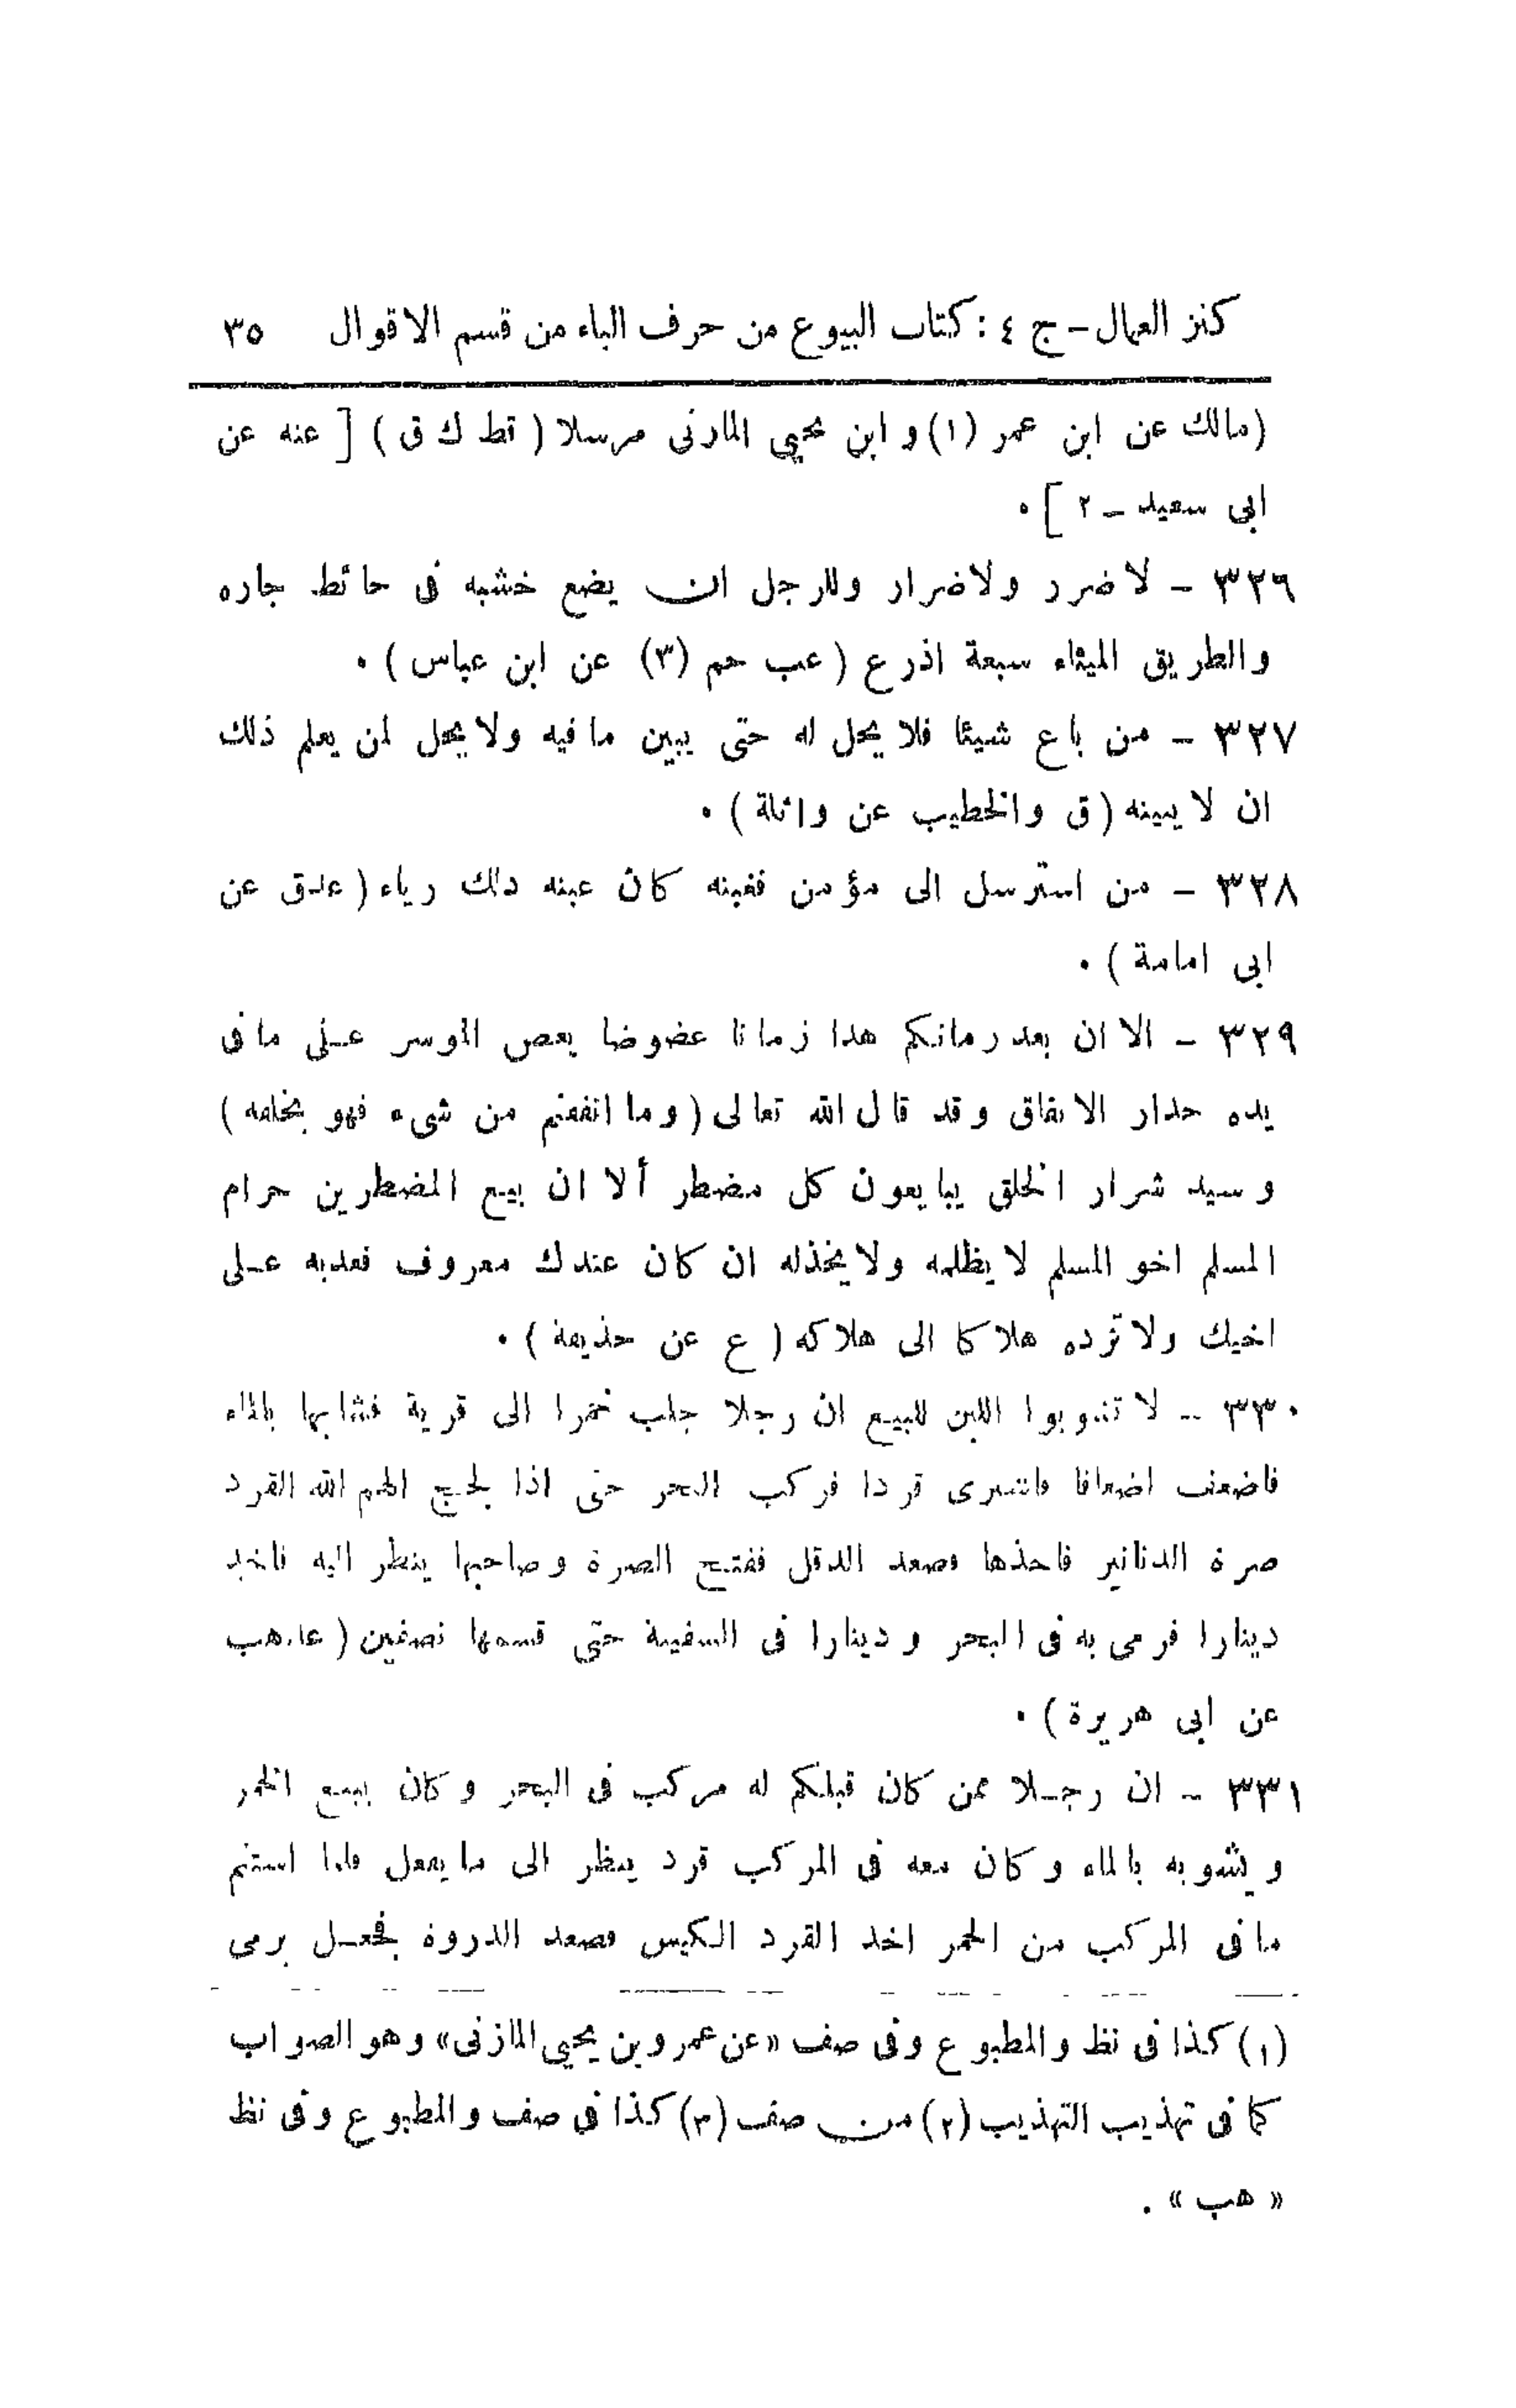 كنز العمال – ج ٤ : كتاب البيوع من حرف الباء من قسم الاقوال ٣٥
(مالك عن ابن عمر (١) و ابن يحيى المازنى مرسلا ( قط ك ق ) [ عنه عن
ابى سعيد – ٢ ] ٠
٣٢٦ – لا ضرر ولا ضرار وللرجل ان يضع خشبه فى حائط جاره
والطريق الميثاء سبعة اذرع ( عب حم (٣) عن ابن عباس ) ٠
٣٢٧ – من باع شيئا فلا يحل له حتى يبين ما فيه ولا يحل لمن يعلم ذلك
ان لا يبينه ( ق والخطيب عن واثلة ) ٠
٣٢٨ – من استرسل الى مؤمن فغبنه كان غبنه ذلك رياء ( عد ق عن
ابى امامة ) ٠
٣٢٩ – الا ان بعد زمانكم هذا زمانا عضوضا يعض الموسر على ما فى
يده حذار الانفاق و قد قال الله تعالى ( و ما انفقتم من شىء فهو يخلفه )
و سيد شرار الخلق يبايعون كل مضطر ألا ان بيع المضطرين حرام
المسلم اخو المسلم لا يظلمه ولا يخذله ان كان عندك معروف فعد به على
اخيك ولا تزده هلاكا الى هلاكه ( ع عن حذيفة ) ٠
٣٣٠ – لا تشوبوا اللبن للبيع ان رجلا جلب خمرا الى قرية فشابها بالماء
فاضعف اضعافا فاشترى قردا فركب البحر حتى اذا لجج الهم الله القرد
صرة الدنانير فاخذها فصعد الدقل ففتح الصرة و صاحبها ينظر اليه فاخذ
دينارا فرمى به فى البحر و دينارا فى السفينة حتى قسمها نصفين ( هب
عن ابى هريرة ) ٠
٣٣١ – ان رجلا ممن كان قبلكم له مركب فى البحر و كان يبيع الخمر
و يشوبه بالماء و كان معه فى المركب قرد ينظر الى ما يفعل فلما استتم
ما فى المركب من الخمر اخذ القرد الكيس فصعد الذروة فجعل يرمى
(١) كذا فى نظ والمطبوع وفى صف «عن عمرو بن يحيى المازنى» وهو الصواب
كما فى تهذيب التهذيب (٢) من صف (٣) كذا فى صف والمطبوع وفى نظ
« هب » .